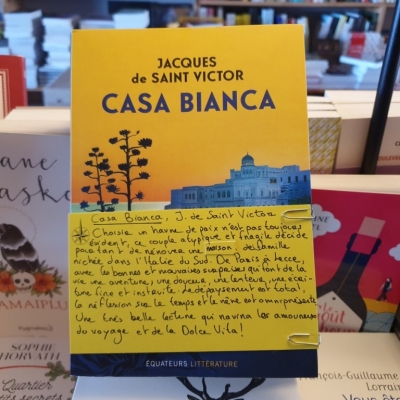 JACQUES
de SAINT VICTOR
CASA BIANCA
Casa Bianca, J. de Saint Victor
Choisir un havre de paix n'est pas toujours
évident, ce couple atypique et fragile décide
pourtant de rénover une maison de famille
nichée dans l'Italie du Sud. De Paris à Lecce,
avec les bonnes et mauvaises surprises qui font de la
vie une aventure, une douceur, une lenteur, une écri-
ture fine et instruite. Le dépaysement est total,
la réflexion sur le temps et le rêve est omniprésente.
Une très belle lecture qui ravira les amoureux
du voyage et de la Dolce Vita!
ÉQUATEURS LITTÉRATURE
SOPHIE
HORVATH
Quartier
petits secrets
François-Guillaume
Lorrain